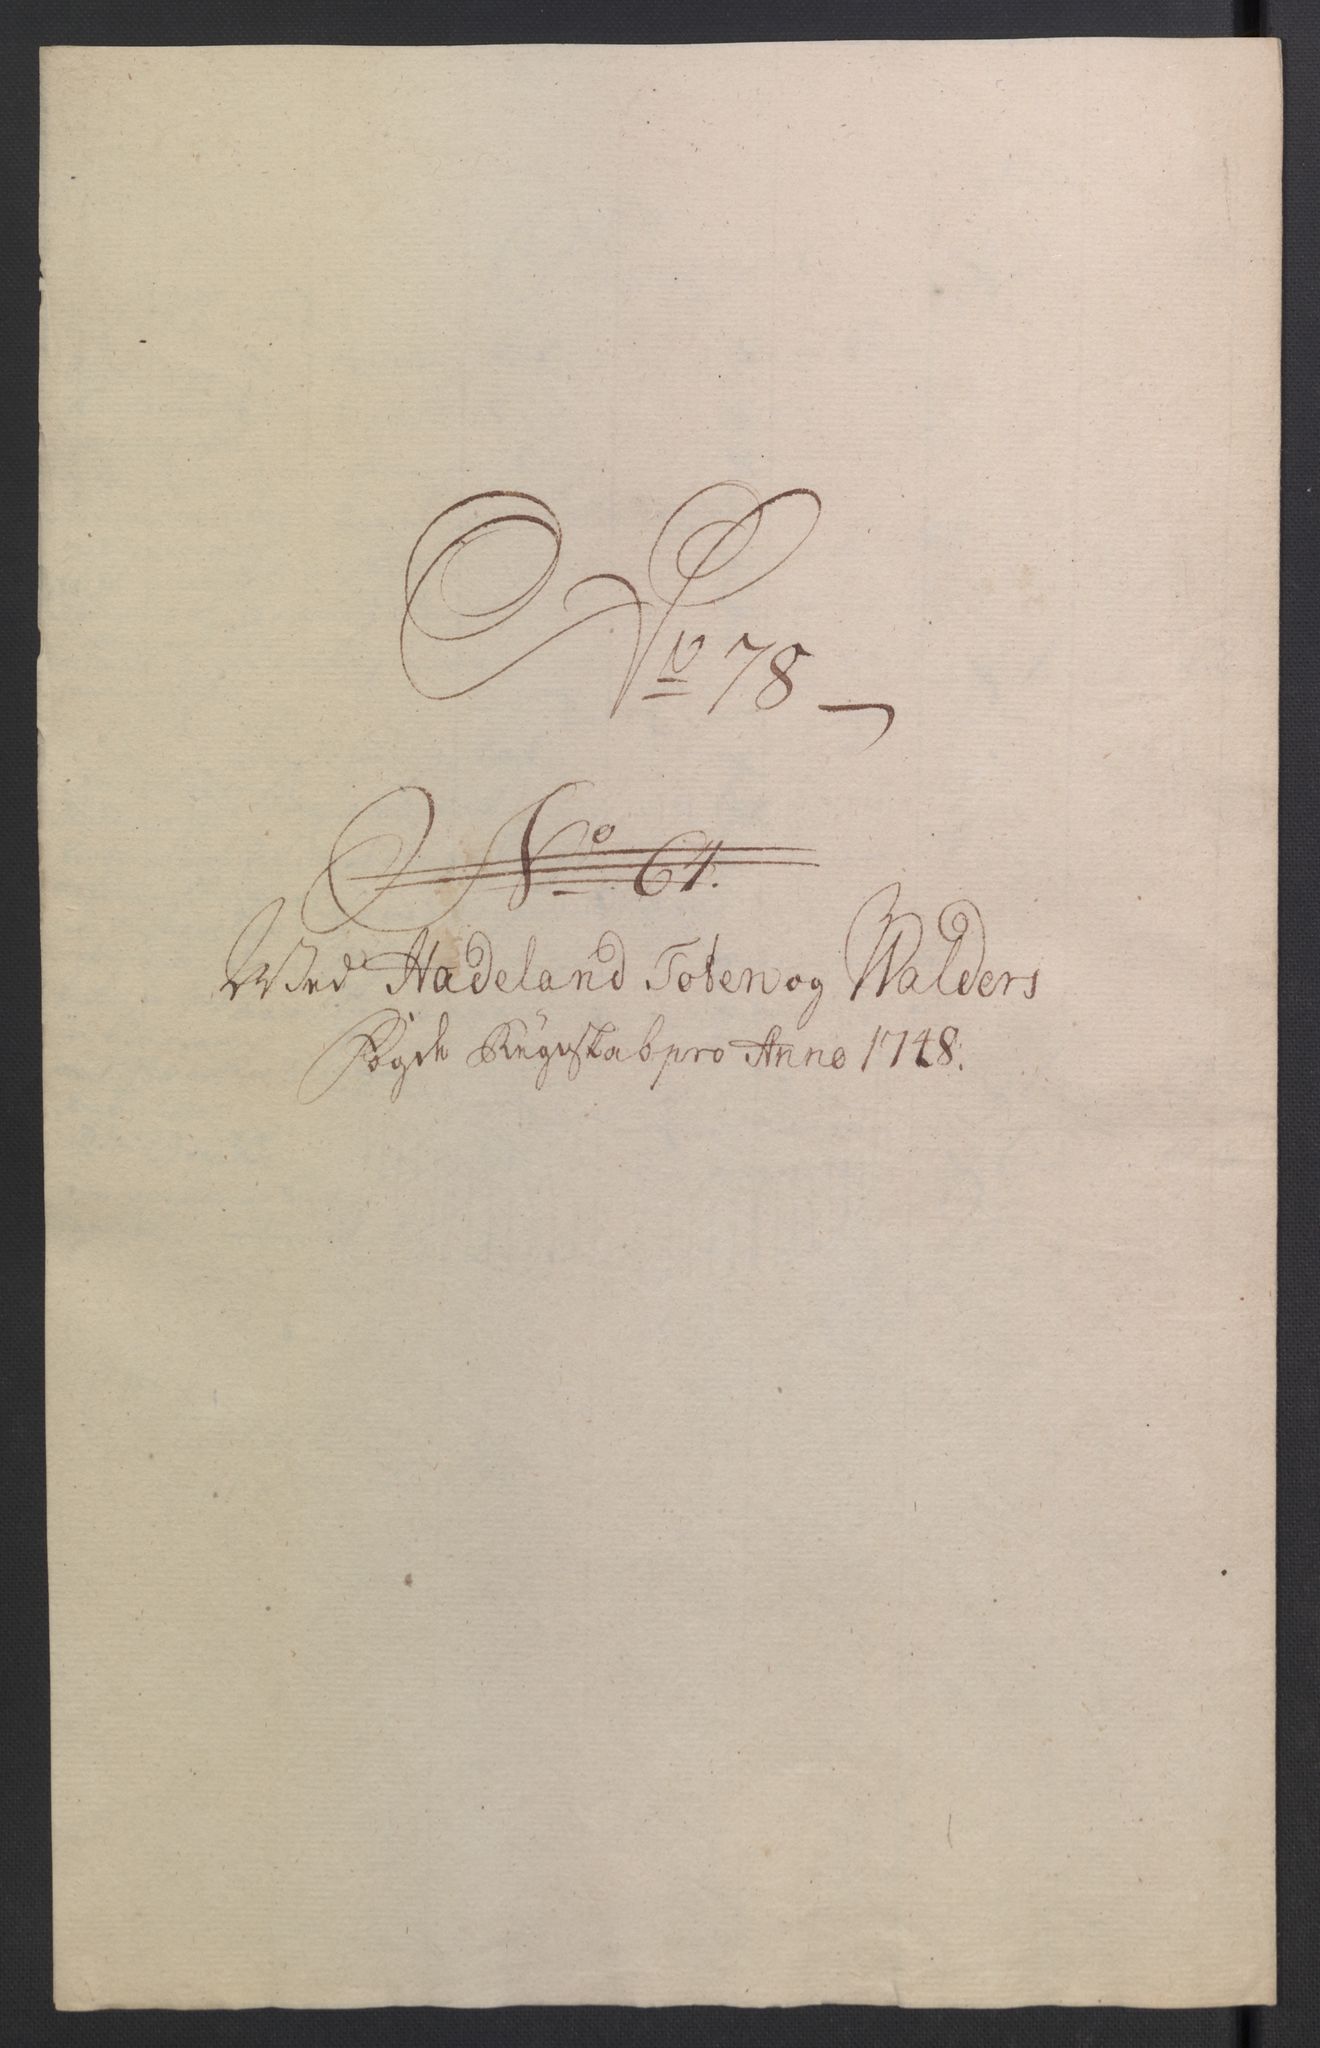 No 78
No 64.
Wed Hadeland Toten og Walders
Fogde Regnskab pro Anno 1748.